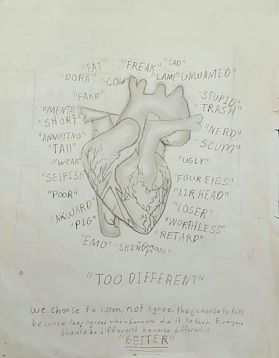 "FAT" "FREAK" "SAD"
"DORK" "COW" "LAME" "UNWANTED"
"FAKE" "STUPID"
"MENTAL" "TRASH"
"SHORT" "NERD"
"ANNOYING" "SCUM"
"TALL"
"WEAK" "UGLY"
"SELFISH" "FOUR EYES"
"POOR" "AIR HEAD"
"LOSER"
"AKWARD" "WORTHLESS"
"PIG" "RETARD"
"EMO"
"TOO DIFFERENT"
we choose to listen, not agree, they choose to talk
because they agreed when someone did it to them. Everyone
should be different because different is
"BETTER"